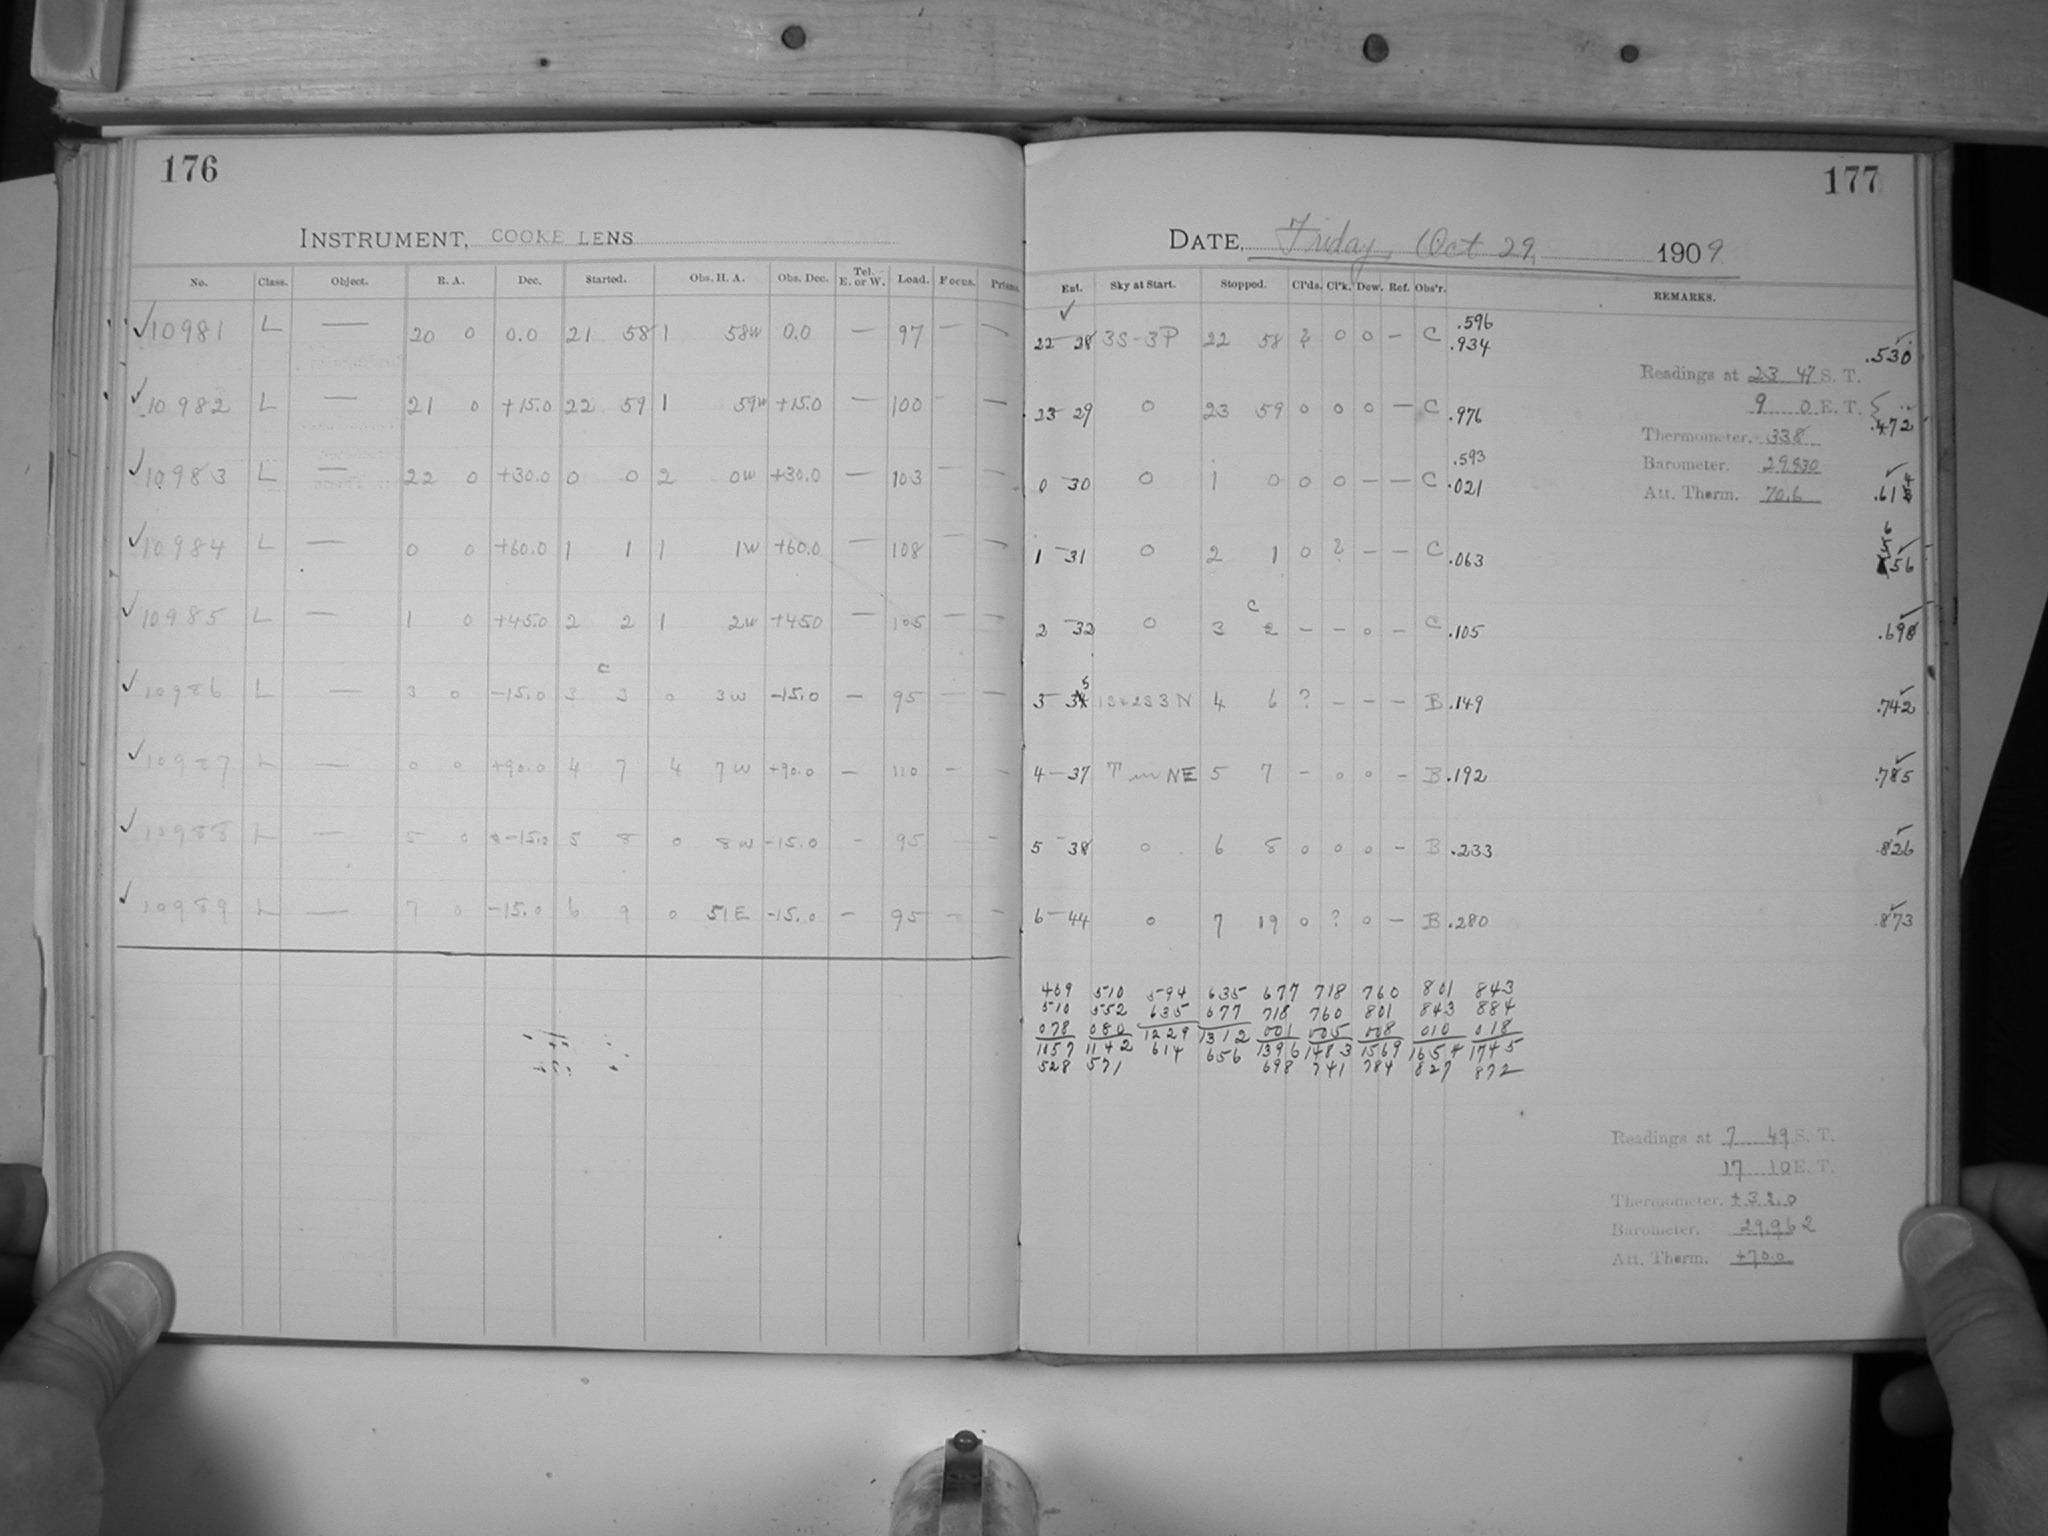 176
INSTRUMENT, COOKE LENS
No. Class. Object. R. A. Dec. Started. Obs. H. A. Obs. Dec. Tel. E. or W. Load. Focus. Prisms.
✓10981 L — 20 0 0.0 21 58 1 58W 0.0 — 97 — —
✓10982 L — 21 0 +15.0 22 59 1 59W +15.0 — 100 - —
✓10983 L — 22 0 +30.0 0 0 2 0W +30.0 — 103 — —
✓10984 L — 0 0 +60.0 1 1 1 1W +60.0 — 108 — —
✓10985 L — 1 0 +45.0 2 2 1 2W +450 — 105 — —
C
✓10986 L — 3 0 -15.0 3 3 0 3W -15.0 — 95 — —
✓10987 L — 0 0 +90.0 4 7 4 7W +90.0 — 110 - —
✓10988 L — 5 0 -15.0 5 8 0 8W -15.0 — 95 —
✓10989 L — 7 0 -15.0 6 9 0 51E -15.0 — 95 — —
177
DATE, Friday, Oct 29, 1909
Ent. Sky at Start. Stopped. Cl'ds. Cl'k. Dew. Ref. Obs'r. REMARKS.
✓
22 28 3S-3P 22 58 ? 0 0 — C .596 .934 .530
Readings at 23 47 S. T.
23 29 0 23 59 0 0 0 — C .976
9 0 E. T.
.472
Thermometer. 338
Barometer. 29.830
Att. Therm. 70.6
0 30 0 1 0 0 0 — — C .593 .021 .614
1 31 0 2 1 0 ? — — C .063 656
C
2 32 0 3 2 — — 0 — C .105 .698
3 35 4 6 ? — — — B .149 .742
4-37 T in NE 5 7 — 0 0 — B .192 .785
5 38 0 6 8 0 0 0 — B .233 .826
6-44 0 7 19 0 ? 0 — B .280 .873
469 510 594 635 677 718 760 801 843
510 552 635 677 718 760 801 843 884
078 080 1229 1312 001 005 008 010 018
1057 1142 614 656 1396 1483 1569 1654 1745
528 571 698 741 784 827 872
Readings at 7 49 S. T.
17 10 E. T.
Thermometer. +32.0
Barometer. 29.962
Att. Therm. +70.0